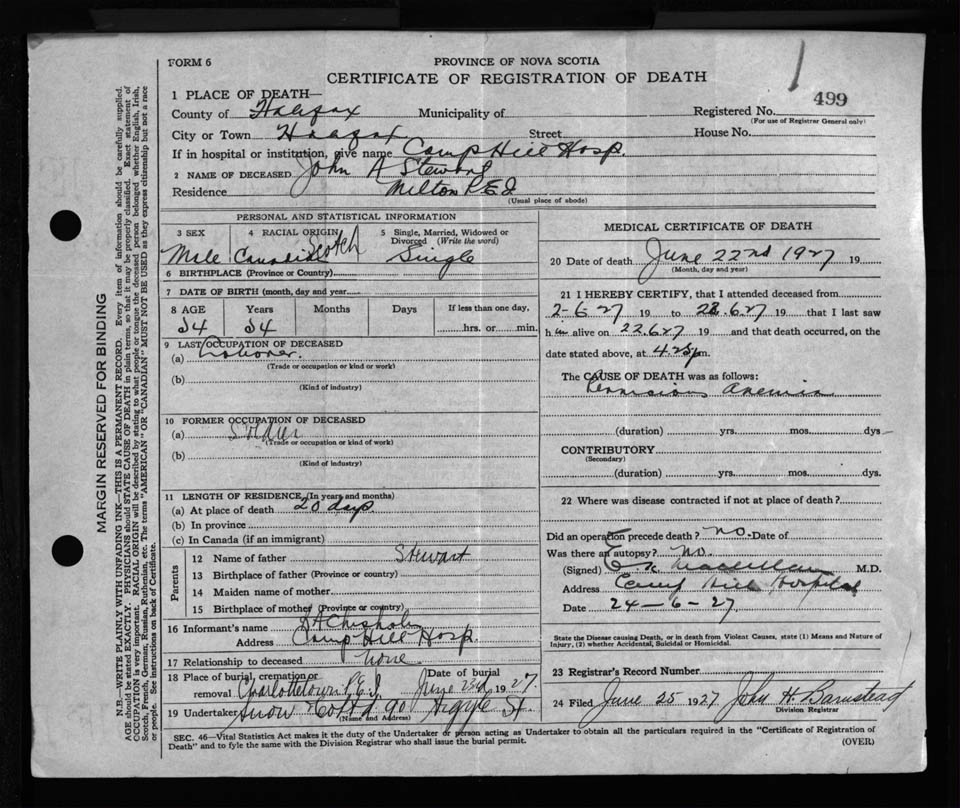 FORM 6
PROVINCE OF NOVA SCOTIA
CERTIFICATE OF REGISTRATION OF DEATH
1 PLACE OF DEATH—
County of Halifax Municipality of
Registered No. 499
(For use of Registrar General only)
City or Town Halifax Street
House No.
If in hospital or institution, give name Camp Hill Hosp.
2 NAME OF DECEASED John A Stewart
Residence Milton P.E.I
(Usual place of abode)
PERSONAL AND STATISTICAL INFORMATION
3 SEX 4 RACIAL ORIGIN 5 Single, Married, Widowed or
Divorced (Write the word)
Male Canadian Scotch Single
6 BIRTHPLACE (Province or Country)
7 DATE OF BIRTH (month, day and year
8 AGE Years Months Days If less than one day,
34 34 hrs. or min.
9 LAST OCCUPATION OF DECEASED
(a) Laborer.
(Trade or occupation or kind or work)
(b)
(Kind of industry)
10 FORMER OCCUPATION OF DECEASED
(a) Soldier
(Trade or occupation or kind of work)
(b)
(Kind of industry)
11 LENGTH OF RESIDENCE (In years and months)
(a) At place of death 20 days
(b) In province
(c) In Canada (if an immigrant)
Parents
12 Name of father Stewart
13 Birthplace of father (Province or country)
14 Maiden name of mother
15 Birthplace of mother (Province or country)
16 Informant's name Chisholm
Address Camp Hill Hosp.
17 Relationship to deceased none
18 Place of burial, cremation or Date of burial
removal Charlottetown P.E.I. June 23rd 1927.
19 Undertaker Snow & Co Ltd 90 Argyle St.
(Name and Address)
MEDICAL CERTIFICATE OF DEATH
20 Date of death June 22nd 1927 19
(Month, day and year)
21 I HEREBY CERTIFY, that I attended deceased from
2-6-27 19 to 22.6.27 19 that I last saw
h im alive on 22.6.27 19 and that death occurred, on the
date stated above, at 4.25 p m.
The CAUSE OF DEATH was as follows:
Pernicious Anemia
(duration) yrs. mos. dys
CONTRIBUTORY
(Secondary)
(duration) yrs. mos. dys.
22 Where was disease contracted if not at place of death?
Did an operation precede death? no. Date of
Was there an autopsy? no
(Signed) M.D.
Address Camp Hill Hospital
Date 24-6-27
State the Disease causing Death, or in death from Violent Causes, state (1) Means and Nature of
Injury, (2) whether Accidental, Suicidal or Homicidal.
23 Registrar's Record Number
24 Filed June 25 1927 John H Barnstead
Division Registrar
SEC. 46—Vital Statistics Act makes it the duty of the Undertaker or person acting as Undertaker to obtain all the particulars required in the "Certificate of Registration of
Death" and to fyle the same with the Division Registrar who shall issue the burial permit.
(OVER)
MARGIN RESERVED FOR BINDING
N.B.—WRITE PLAINLY WITH UNFADING INK—THIS IS A PERMANENT RECORD. Every item of information should be carefully supplied.
AGE should be stated EXACTLY. PHYSICIANS should STATE CAUSE OF DEATH in plain terms, so that it may be properly classified. Exact statement of
OCCUPATION is very important. RACIAL ORIGIN will be described by stating to what people or tongue the deceased person belonged whether English, Irish,
Scotch, French, German, Russian, Ruthenian, etc. The terms "AMERICAN" OR "CANADIAN" MUST NOT BE USED as they express citizenship but not a race
or people. See instructions on back of Certificate.